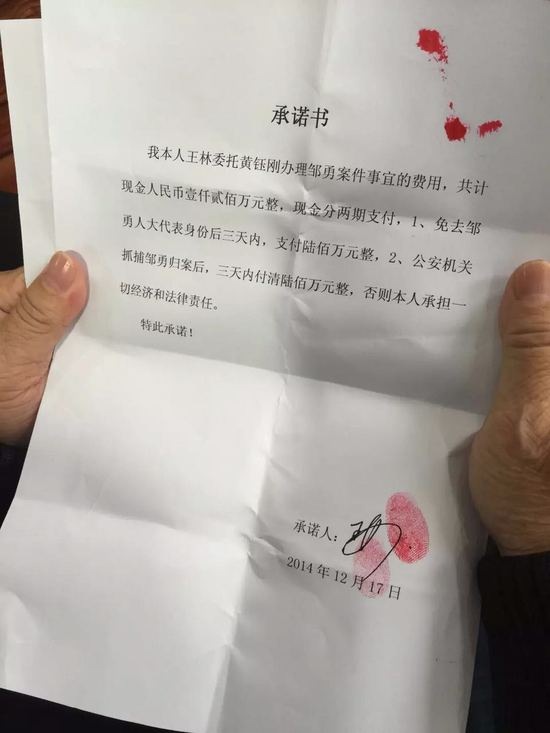 承诺书
我本人王林委托黄钰刚办理邹勇案件事宜的费用，共计
现金人民币壹仟贰佰万元整，现金分两期支付，1、免去邹
勇人大代表身份后三天内，支付陆佰万元整，2、公安机关
抓捕邹勇归案后，三天内付清陆佰万元整，否则本人承担一
切经济和法律责任。
特此承诺！
承诺人：
2014 年 12 月 17 日